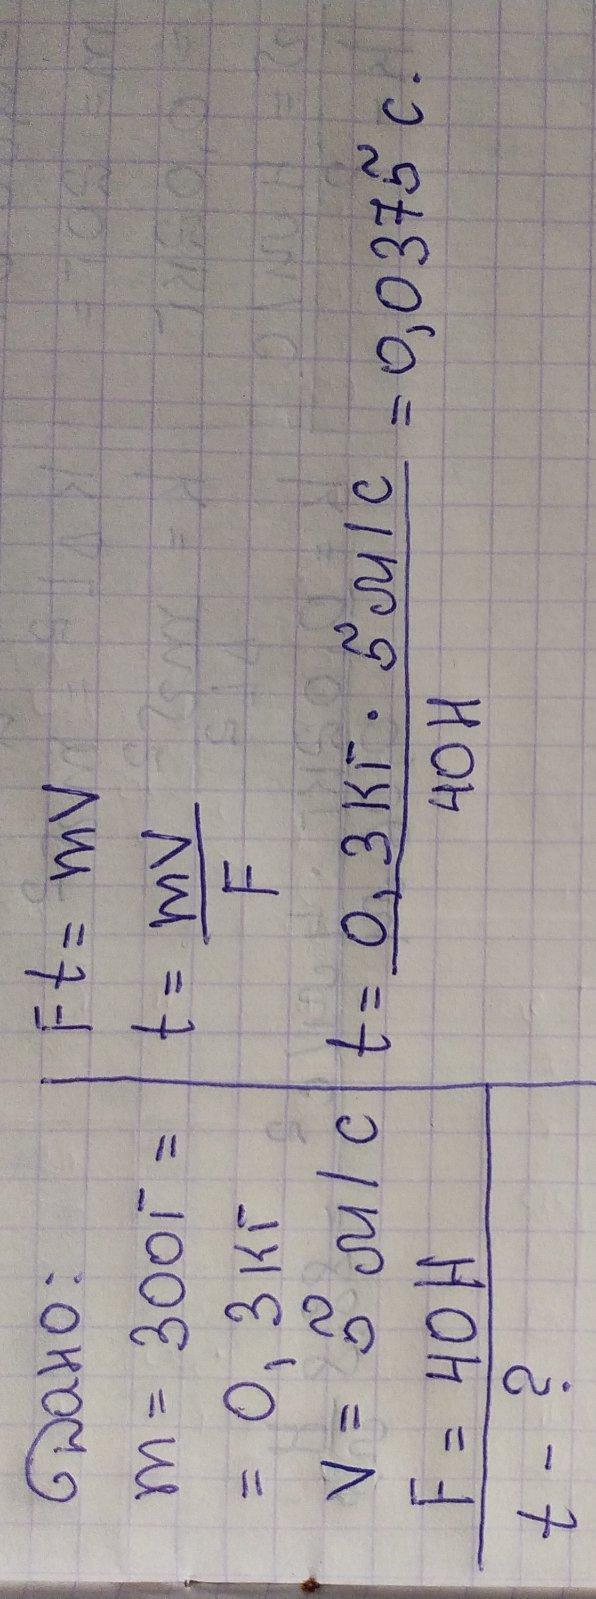 Дано:
m = 300г =
= 0,3кг
v = 5 м/с
F = 40Н
t - ?
Ft = mv
t = mv/F
t = 0,3кг · 5м/с / 40Н = 0,0375 с.